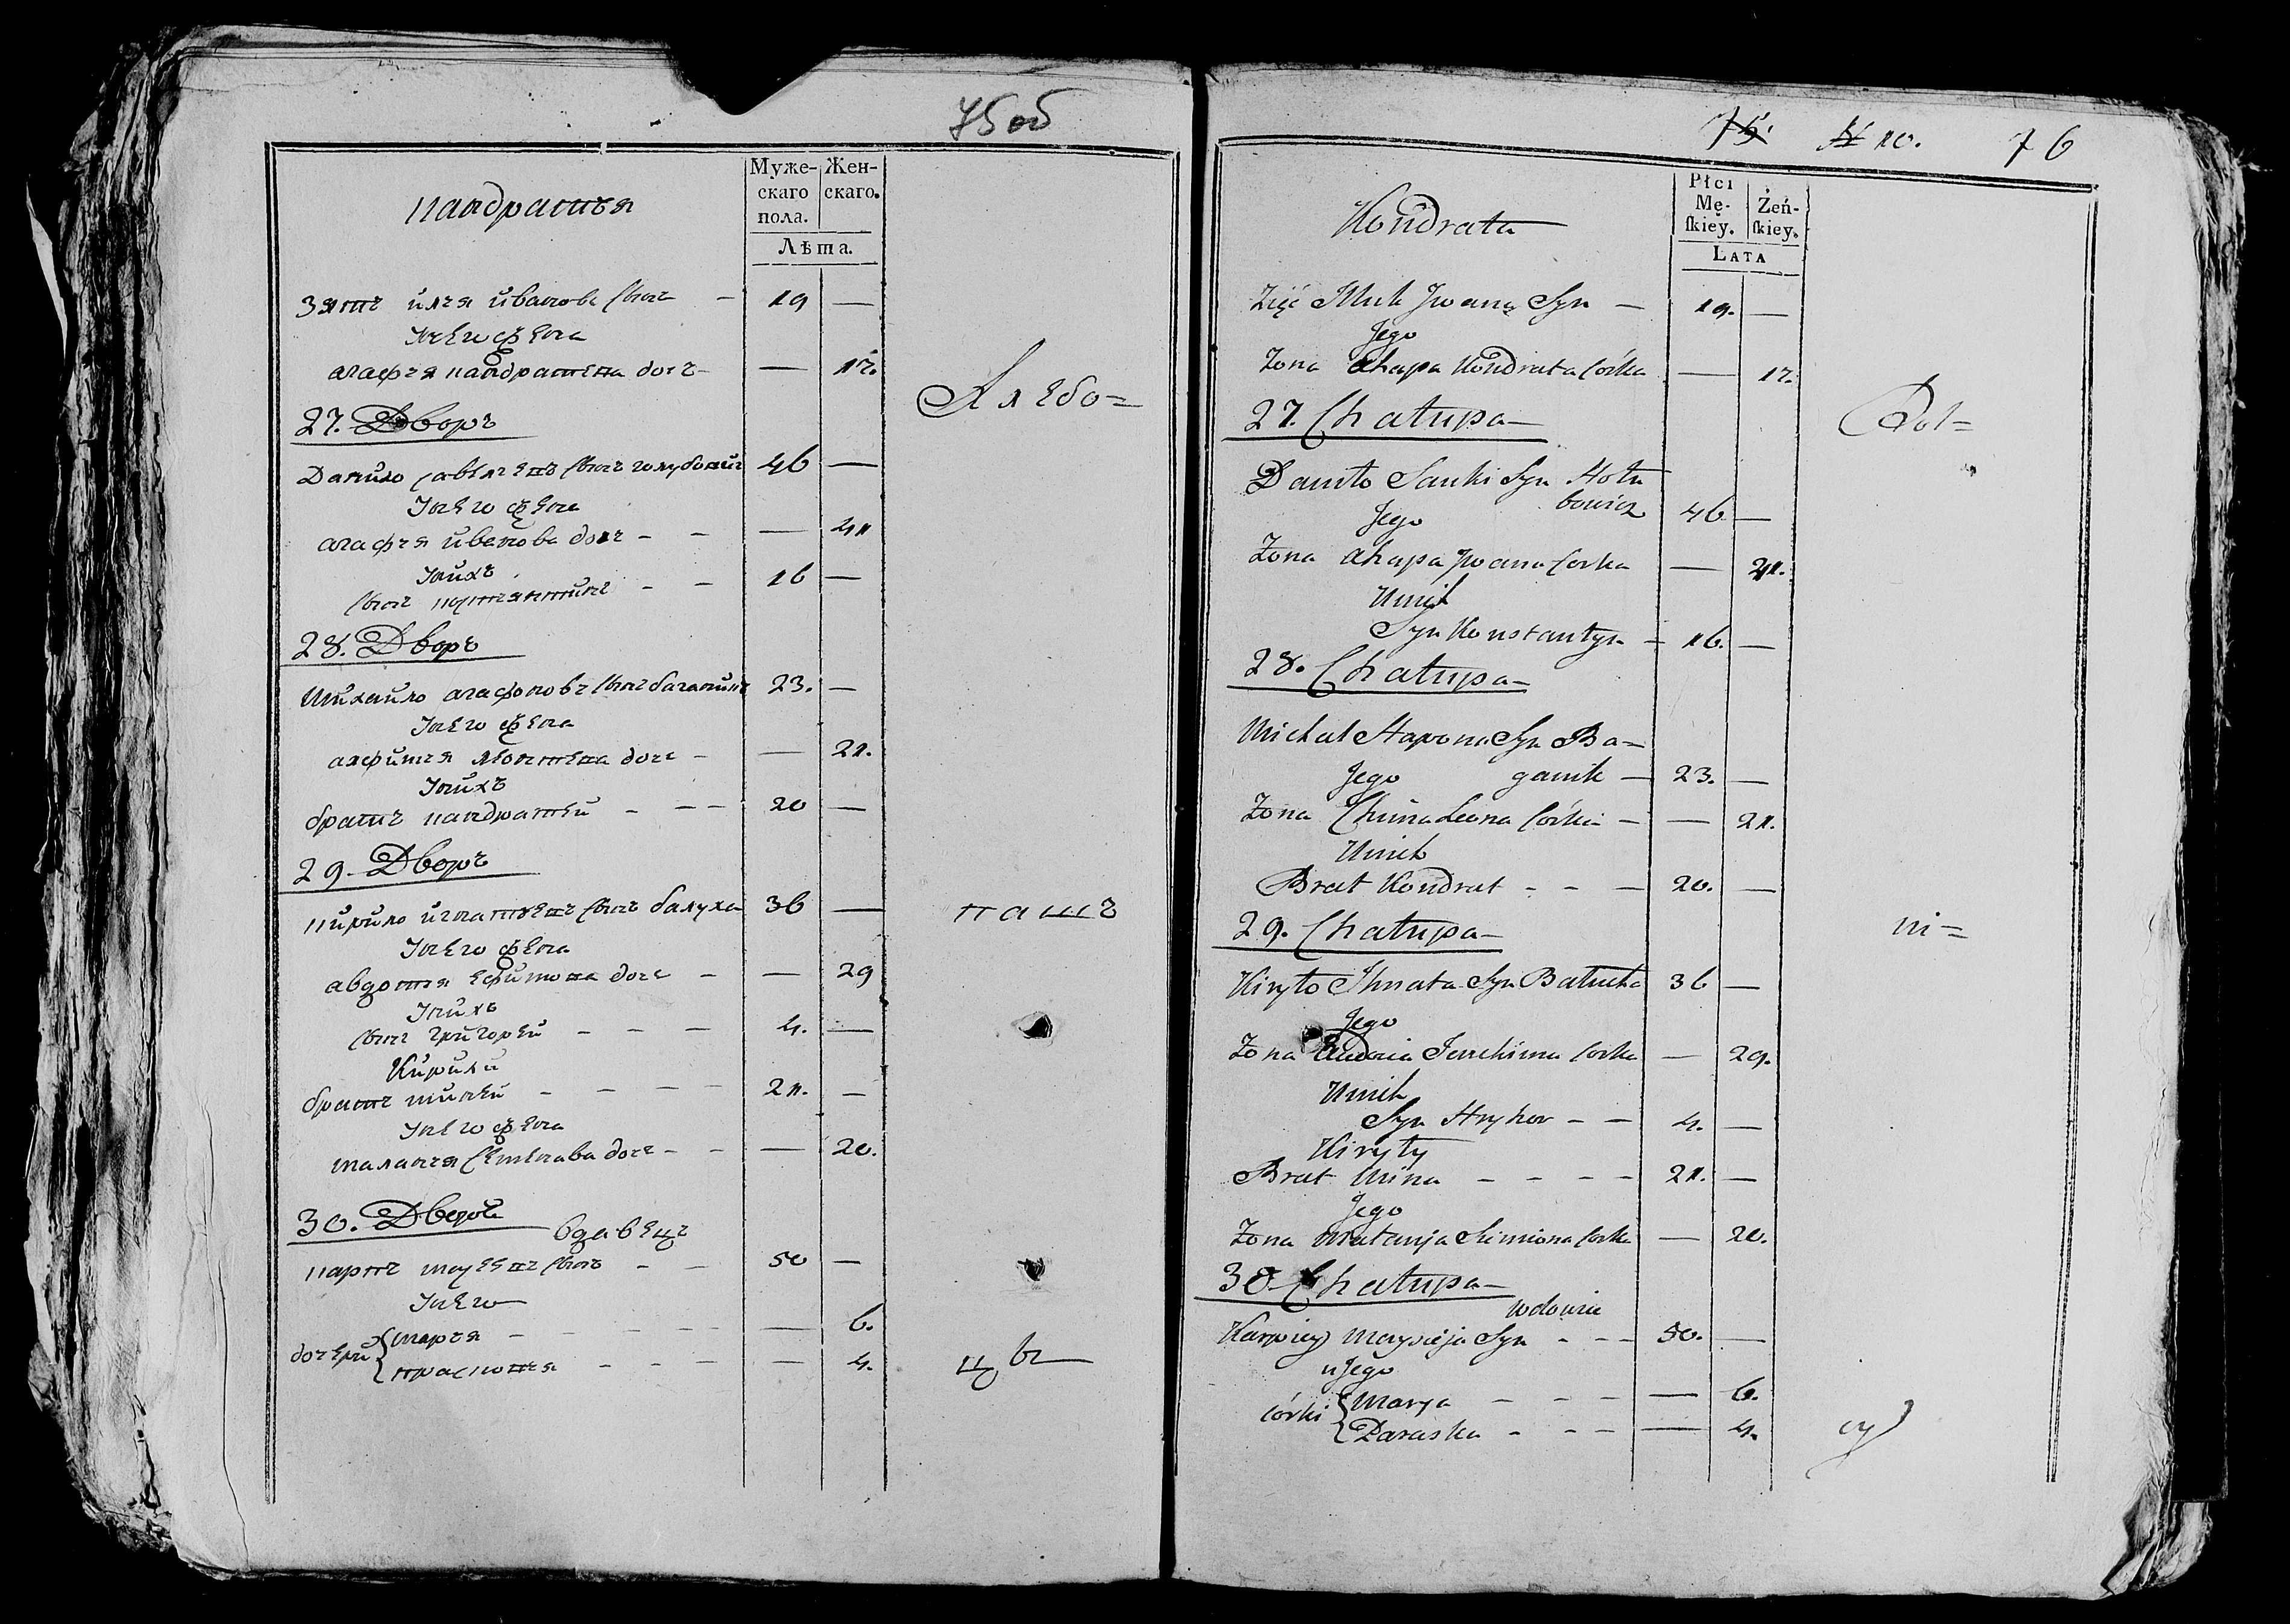 75 об
Кондратья
Муже-
скаго
пола.
Жен-
скаго.
Лѣта.
Зять илья иванова сынъ — 19 —
Унего жена
агафья кандратева дочь — — 17.
27. Дворъ
Данило савельевъ сынъ голубовичъ 46 —
Унего жена
агафья иванова дочь — — — 41
Унихъ
сынъ костянтинъ — — 16 —
28. Дворъ
Михайло агафоновъ сынъ баганикъ 23. —
Унего жена
акфимья леонтева дочь — — 21.
Унихъ
братъ кандратей — — — 20 —
29. Дворъ
кирило игнатьевъ сынъ балуха 36 —
Унего жена
авдотья ефимова дочь — — 29
Унихъ
сынъ григорей — — — 4. —
Кирилы
братъ миней — — — — 21. —
Унего жена
маланья семенава дочь — — — 20.
30. Дворъ
вдавецъ
карпъ мосеевъ сынъ — — 50 —
Унего
дочери
марья — — — — — 6.
прасковья — — — — 4.
Хлебо=
пашъ
цы
75. N 10. 76
Kondrata
Płci
Mę-
skiey.
Żeń-
skiey.
LATA
Zięć Illuk Jwana Syn — 19. —
Jego
Zona ahapa Kondrata Córka — 17.
27. Chałupa
Daniło Sauki Syn Hołu
bowicz
Jego 46 —
Zona ahapa Jwana Corka — 41.
Unich
Syn Konstantyn — 16. —
28. Chałupa
Michał Hapona Syn Ba=
Jego ganik — 23. —
Zona Chima Leona Córka — — 21.
Unich
Brat Kondrat — — — 20. —
29. Chałupa
Kiryło Ihnata Syn Bałucha 36 —
Jego
Zona Audocia Jauchima Corka — 29.
Unich
Syn Hryhor — — 4. —
Kiryły
Brat Mina — — — — 21. —
Jego
Zona Małanja Simiona Corka — 20.
30. Chałupa
wdowiec
Karpiey Moysieja Syn — — — 50. —
uJego
Córki
Marya — — — — 6.
Paraska — — — — 4.
Rol=
ni=
cy